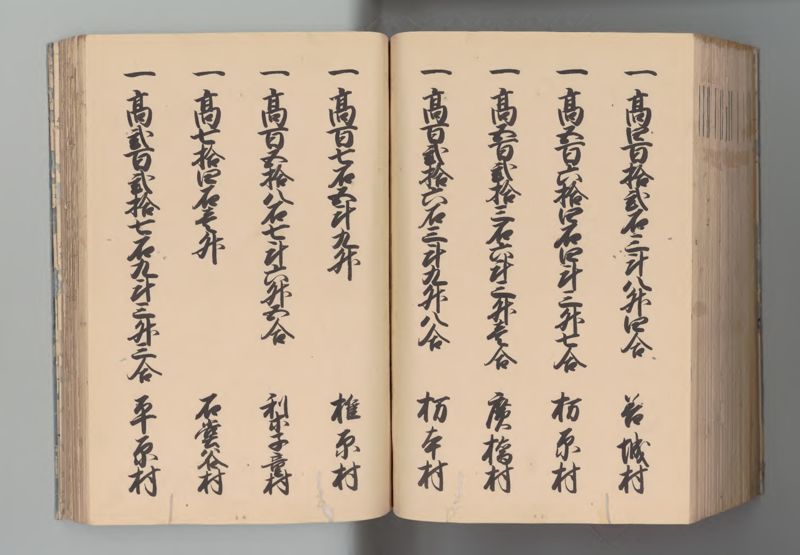 一 高四百拾弐石三斗八升四合 岩城村
一 高五百六拾四石四斗三升七合 栃原村
一 高五百弐拾三石六斗三升壱合 廣橋村
一 高百弐拾六石三斗九升八合 栃本村
一 高百七石五斗九升 椎原村
一 高百五拾八石七斗六升五合 村
一 高七拾四石壱升 石 谷村
一 高弐百弐拾七石九斗三升三合 平原村